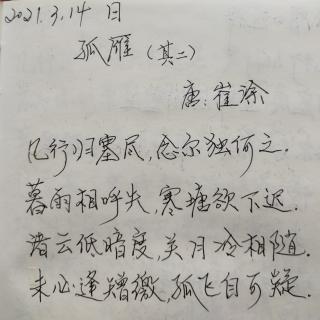 2021.3.14日
孤雁（其二）
唐:崔涂
几行归塞尽,念尔独何之.
暮雨相呼失,寒塘欲下迟.
渚云低暗度,关月冷相随.
未必逢矰缴,孤飞自可疑.